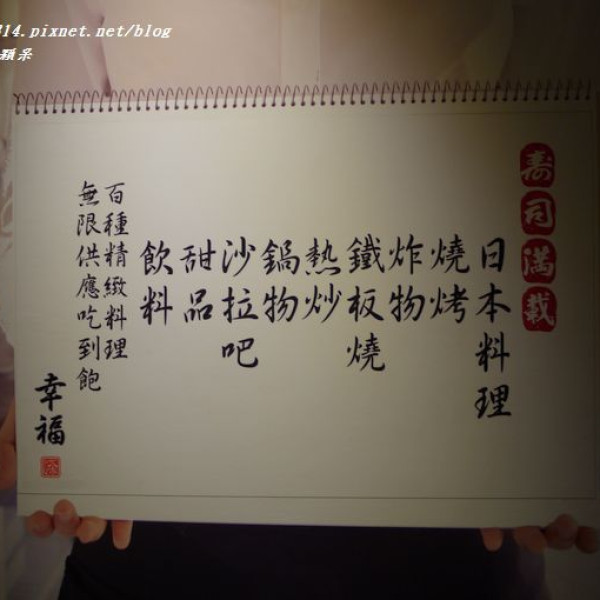 314.pixnet.net/blog
穎呆
寿司満載
日本料理
燒烤
炸物
鐵板燒
熱炒
鍋物
沙拉吧
甜品
飲料
百種精緻料理
無限供應吃到飽
幸福